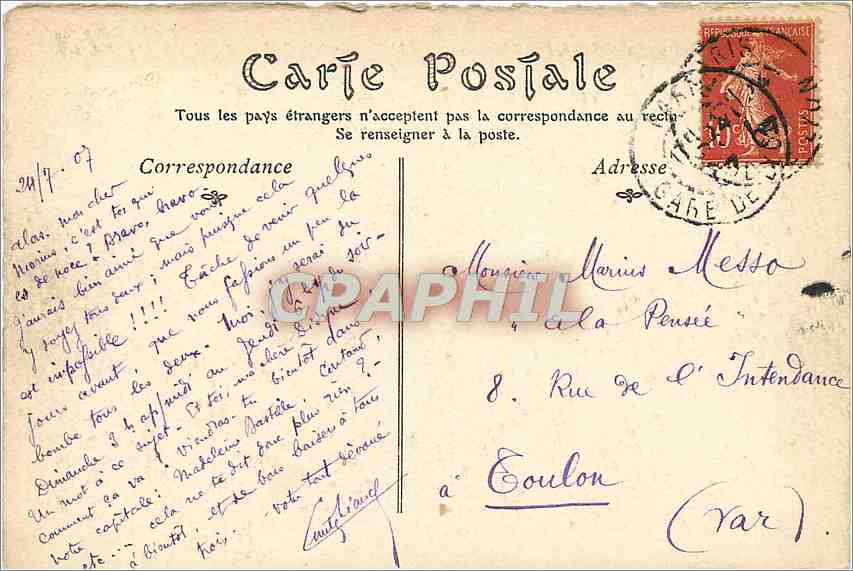 Carte Postale
Tous les pays étrangers n'acceptent pas la correspondance au recto
Se renseigner à la poste.
Correspondance
Adresse
REPUBLIQUE FRANÇAISE
10c POSTES
GARE DE
CPAPHIL
24/7. 07
alors mon cher
Marius, c'est toi qui
es de noce ? Bravo, bravo
j'aurais bien aimé que vous
y soyez tous deux ; mais puisque cela
est impossible !!!! Tâche de venir quelques
jours avant, que nous fassions un peu la
bombe tous les deux. Moi, je serai du
Dimanche 3h ap/midi au Jeudi
Un mot à ce sujet. Et toi, ma chère
comment ça va ? Viendras-tu bientôt dans
votre capitale : Madeleine Bastille,
etc... cela ne te dit donc plus rien ? -
à bientôt, et de bons baisers à tous
trois. Votre tout dévoué
Monsieur Marius Messo
"à la Pensée
8. Rue de l'Intendance
à Toulon
(Var)